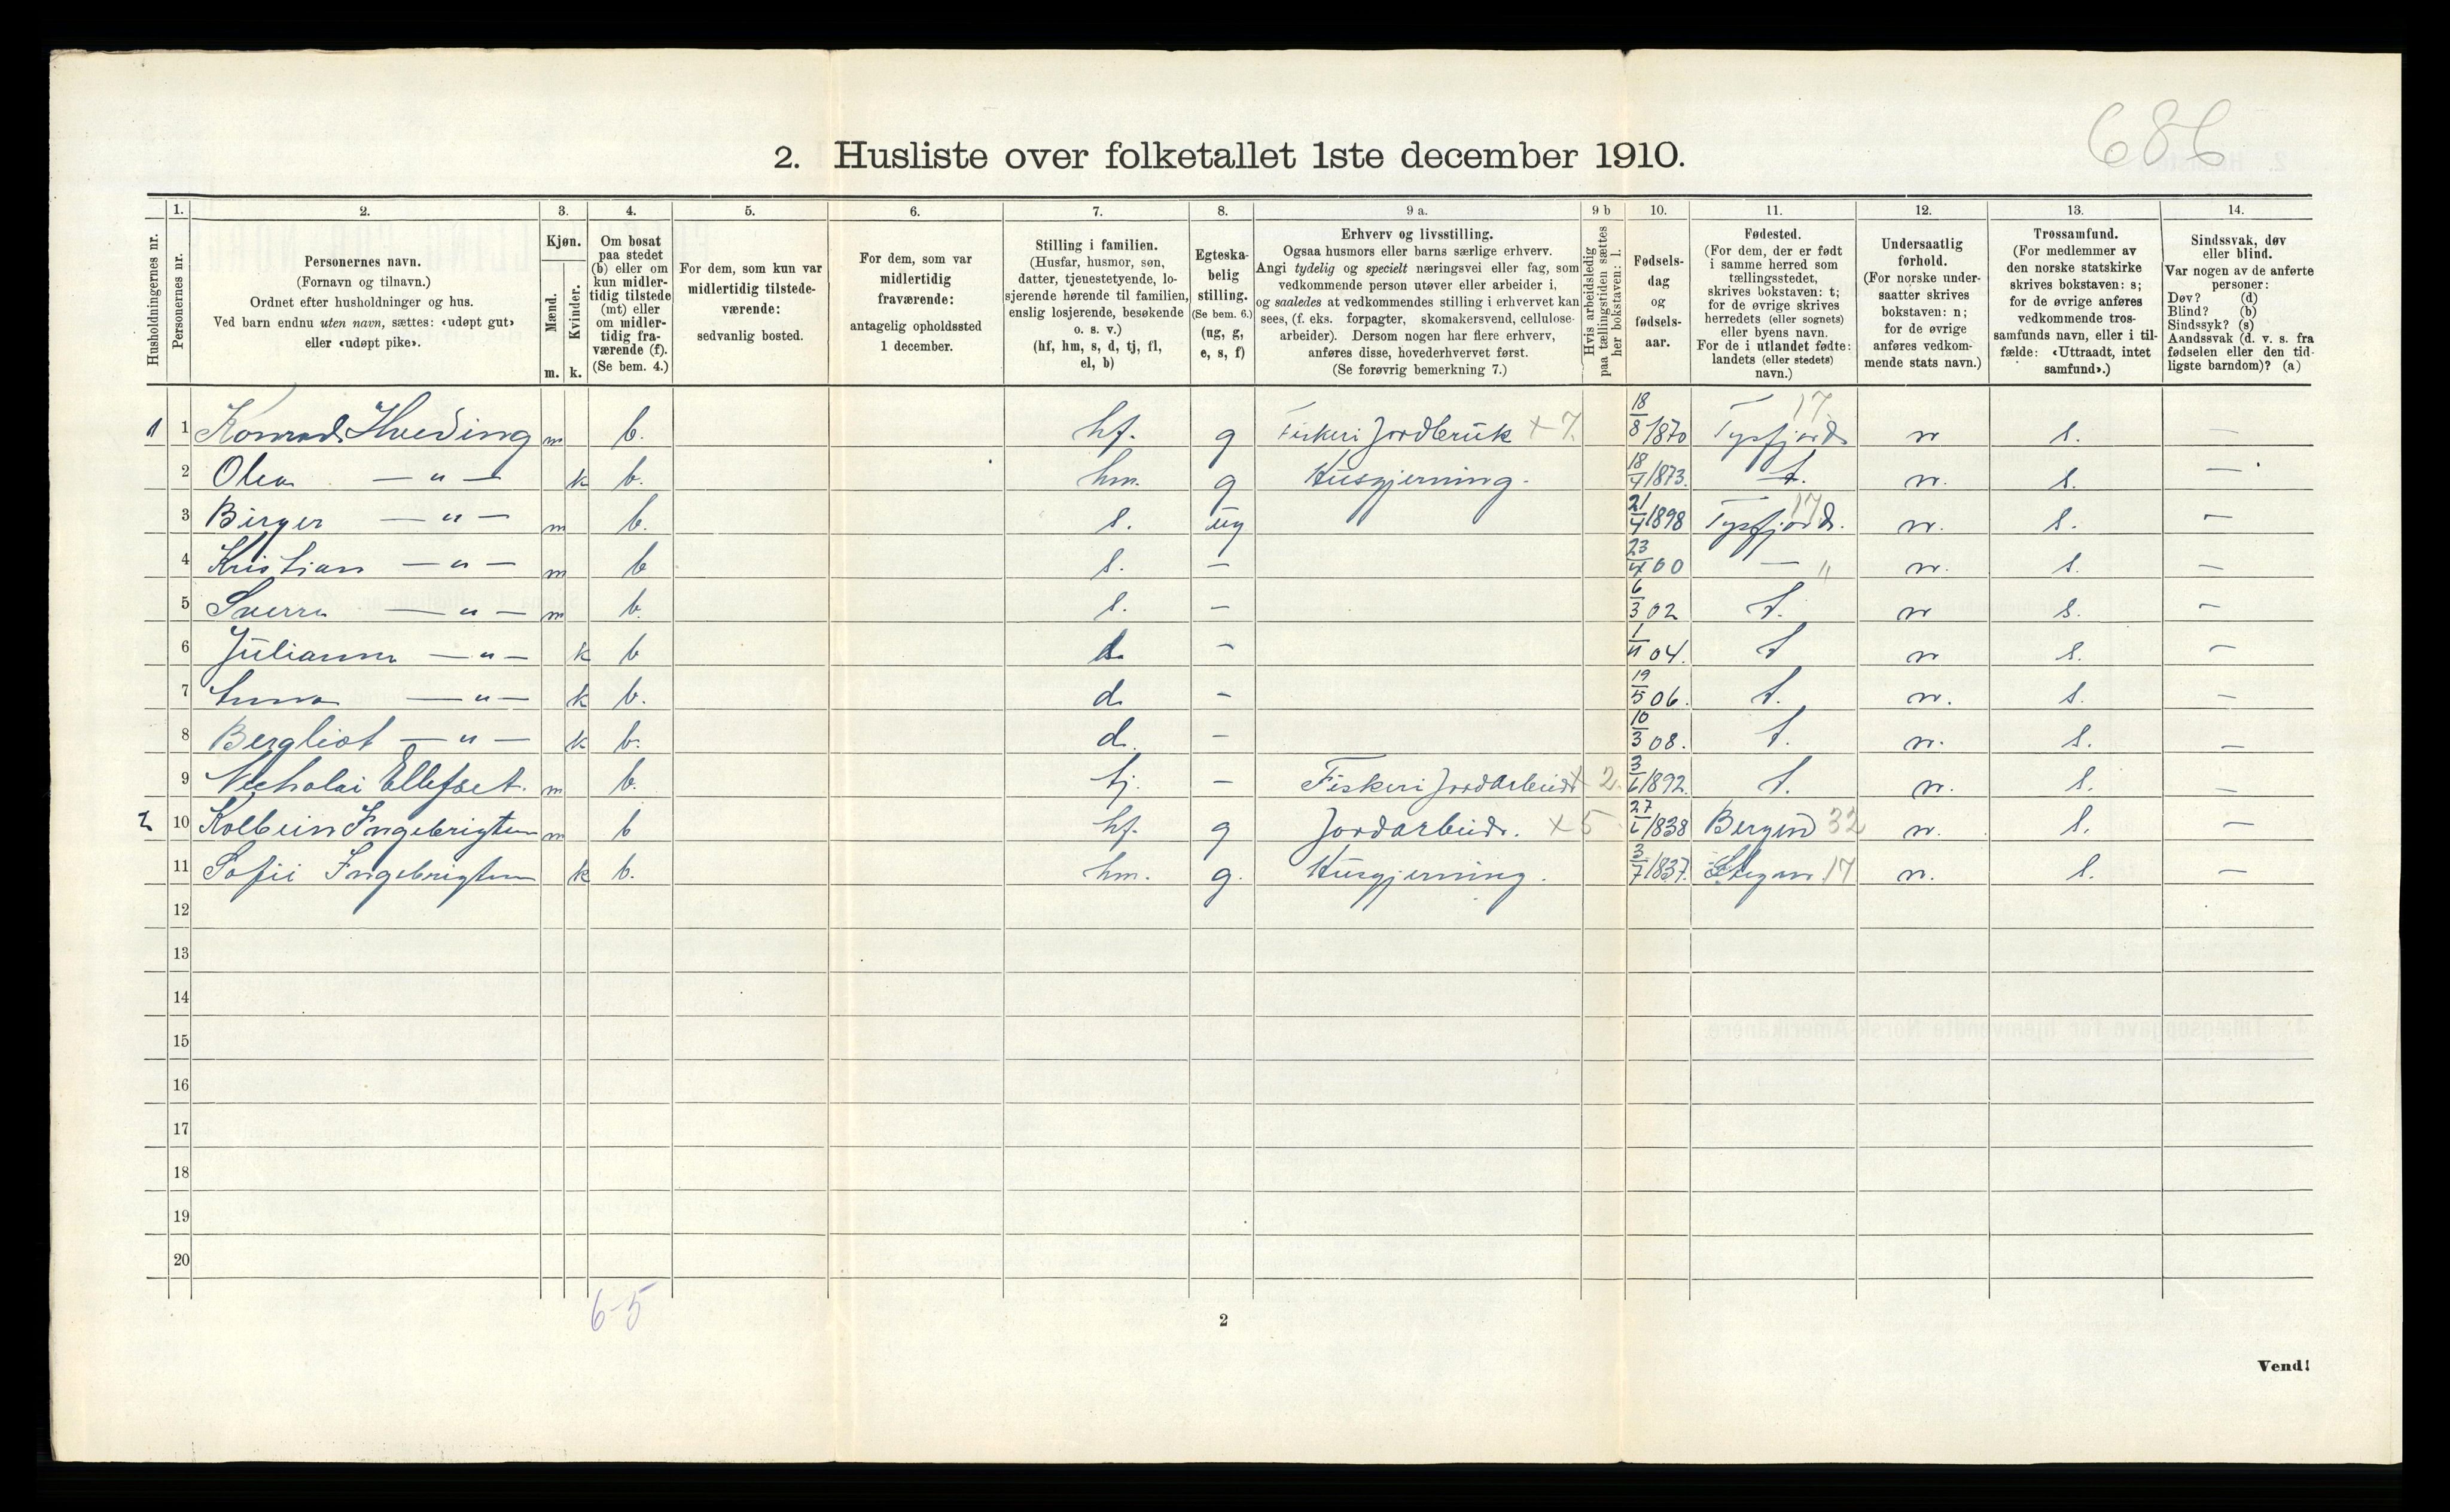 686
2. Husliste over folketallet 1ste december 1910.
Husholdningernes nr.
1.
Personernes nr.
2.
Personernes navn.
(Fornavn og tilnavn.)
Ordnet efter husholdninger og hus.
Ved barn endnu uten navn, sættes: «udøpt gut»
eller «udøpt pike».
3.
Kjøn.
Mænd.
Kvinder.
m. k.
4.
Om bosat
paa stedet
(b) eller om
kun midler-
tidig tilstede
(mt) eller
om midler-
tidig fra-
værende (f).
(Se bem. 4.)
5.
For dem, som kun var
midlertidig tilstede-
værende:
sedvanlig bosted.
6.
For dem, som var
midlertidig
fraværende:
antagelig opholdssted
1 december.
7.
Stilling i familien.
(Husfar, husmor, søn,
datter, tjenestetyende, lo-
sjerende hørende til familien,
enslig losjerende, besøkende
o. s. v.)
(hf, hm, s, d, tj, fl,
el, b)
8.
Egteska-
belig
stilling.
(Se bem. 6.)
(ug, g,
e, s, f)
9 a.
Erhverv og livsstilling.
Ogsaa husmors eller barns særlige erhverv.
Angi tydelig og specielt næringsvei eller fag, som
vedkommende person utøver eller arbeider i,
og saaledes at vedkommendes stilling i erhvervet kan
sees, (f. eks. forpagter, skomakersvend, cellulose-
arbeider). Dersom nogen har flere erhverv,
anføres disse, hovederhvervet først.
(Se forøvrig bemerkning 7.)
9 b
Hvis arbeidsledig
paa tællingstiden sættes
her bokstaven: l.
10.
Fødsels-
dag
og
fødsels-
aar.
11.
Fødested.
(For dem, der er født
i samme herred som
tællingsstedet,
skrives bokstaven: t;
for de øvrige skrives
herredets (eller sognets)
eller byens navn.
For de i utlandet fødte:
landets (eller stedets)
navn.)
12.
Undersaatlig
forhold.
(For norske under-
saatter skrives
bokstaven: n;
for de øvrige
anføres vedkom-
mende stats navn.)
13.
Trossamfund.
(For medlemmer av
den norske statskirke
skrives bokstaven: s;
for de øvrige anføres
vedkommende tros-
samfunds navn, eller i til-
fælde: «Uttraadt, intet
samfund».)
14.
Sindssvak, døv
eller blind.
Var nogen av de anførte
personer:
Døv? (d)
Blind? (b)
Sindssyk? (s)
Aandssvak (d. v. s. fra
fødselen eller den tid-
ligste barndom)? (a)
1 1 Konrad Hveding m b. hf. g Fiskeri Jordbruk + 7. 18/8 1870 Tysfjord 17 n s. —
2 Olea — " — k b. hm. g Husgjerning. 18/4 1873. t. n. s. —
3 Birger — " — m b. s. ug 21/4 1898 Tysfjord. 17 n. s. —
4 Kristian — " — m b s. — 23/4 00 — " n. s. —
5 Sverre — " — m b. s. — 6/3 02 t. n s. —
6 Julianna — " — k b d. — 1/11 04. t n s. —
7 Anna — " — k b. d. — 19/5 06. t. n. s. —
8 Bergliot — " — k b. d. — 10/3 08. t. n. s. —
9 Nicholai Ellefset. m b. tj. — Fiskeri Jordarbeid + 2. 3/6 1892. t. n. s. —
2 10 Kolbein Ingebrigtsen m b hf. g Jordarbeide. + 5 27/6 1838 Bergen 32 n. s. —
11 Sofie Ingebrigtsen k b. hm. g. Husgjerning. 3/7 1837. Stegen 17 n. s. —
12
13
14
15
16
17
18
19
20
6-5
2
Vend!